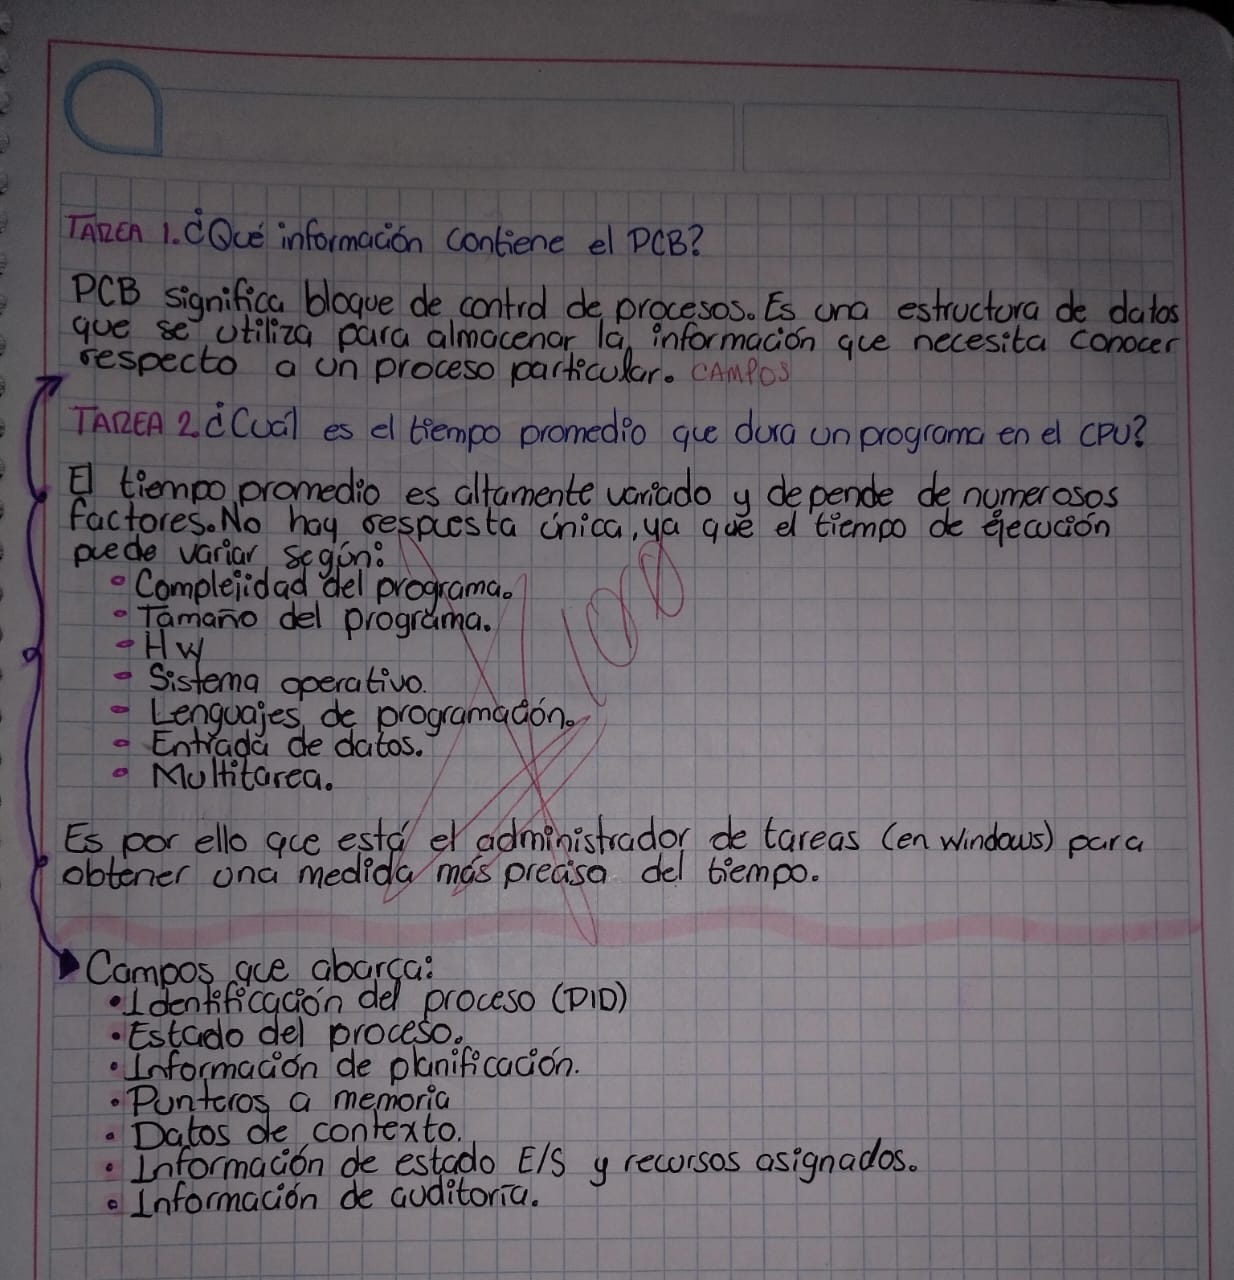 TAREA 1. ¿Qué información contiene el PCB?
PCB significa bloque de control de procesos. Es una estructura de datos
que se utiliza para almacenar la información que necesita conocer
respecto a un proceso particular. CAMPOS
TAREA 2. ¿Cuál es el tiempo promedio que dura un programa en el CPU?
El tiempo promedio es altamente variado y depende de numerosos
factores. No hay respuesta única, ya que el tiempo de ejecución
puede variar según:
• Complejidad del programa.
• Tamaño del programa.
• Hw
• Sistema operativo.
• Lenguajes de programación.
• Entrada de datos.
• Multitarea.
100
Es por ello que está el administrador de tareas (en windows) para
obtener una medida más precisa del tiempo.
Campos que abarca:
• Identificación del proceso (PID)
• Estado del proceso.
• Información de planificación.
• Punteros a memoria
• Datos de contexto.
• Información de estado E/S y recursos asignados.
• Información de auditoría.